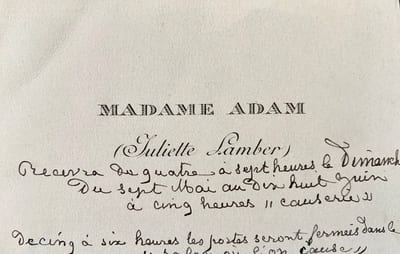 MADAME ADAM
(Juliette Lamber)
Recevra de quatre à sept heures le Dimanch
Du sept Mai au Dix huit Juin
à cinq heures „ causerie „
De cinq à six heures les portes seront fermeis dans le
où l'on cause „